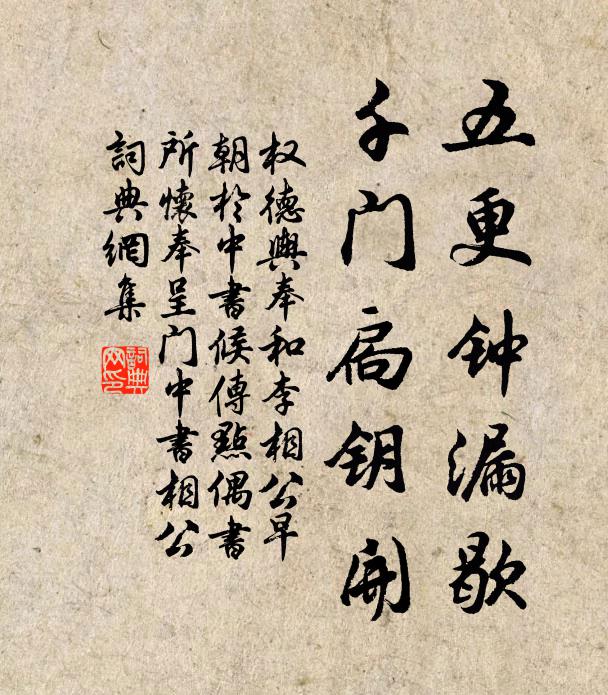 五更钟漏歇
千门扃钥开
权德舆奉和李相公早
朝於中書候傳點偶書
所懷奉呈门中書相公
詞典網集
詞典網印